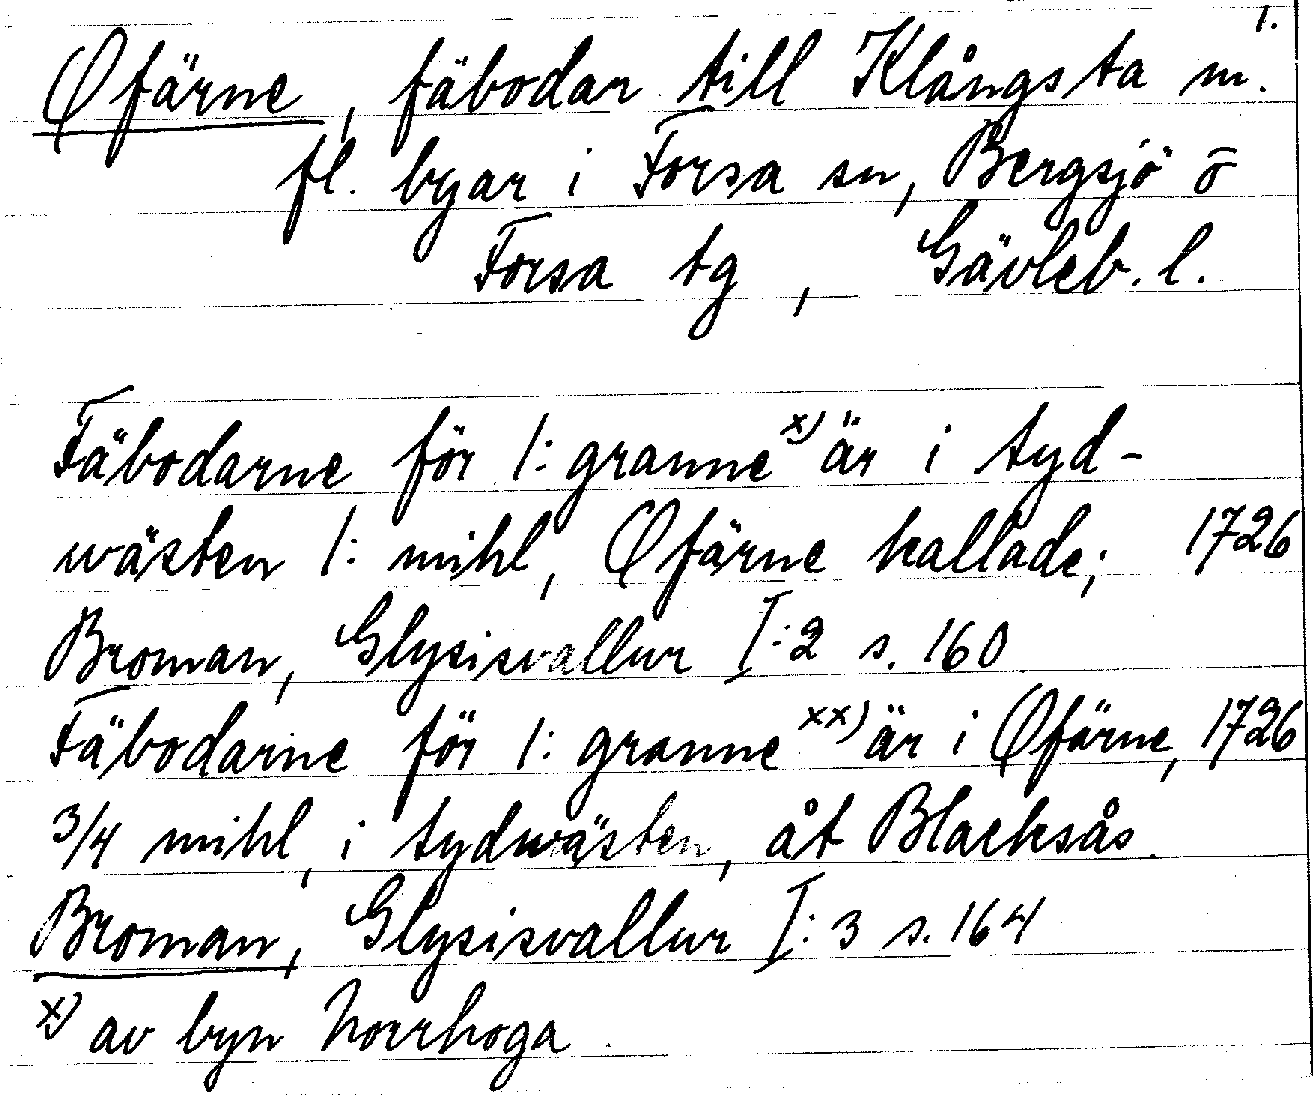 1.
Øfärne, fäbodar till Klångsta m.
fl. byar i Forsa sn, Bergsjö o̅
Forsa tg, Gävleb. l.
Fäbodarne för 1: granne x) är i syd-
wästen 1: mihl, Øfärne kallade; 1726
Broman, Glysisvallur I:2 s. 160
Fäbodarne för 1: granne xx) är i Øfärne, 1726
3/4 mihl, i sydwästen, åt Blacksås.
Broman, Glysisvallur I:3 s. 164
x) av byn Norrhoga